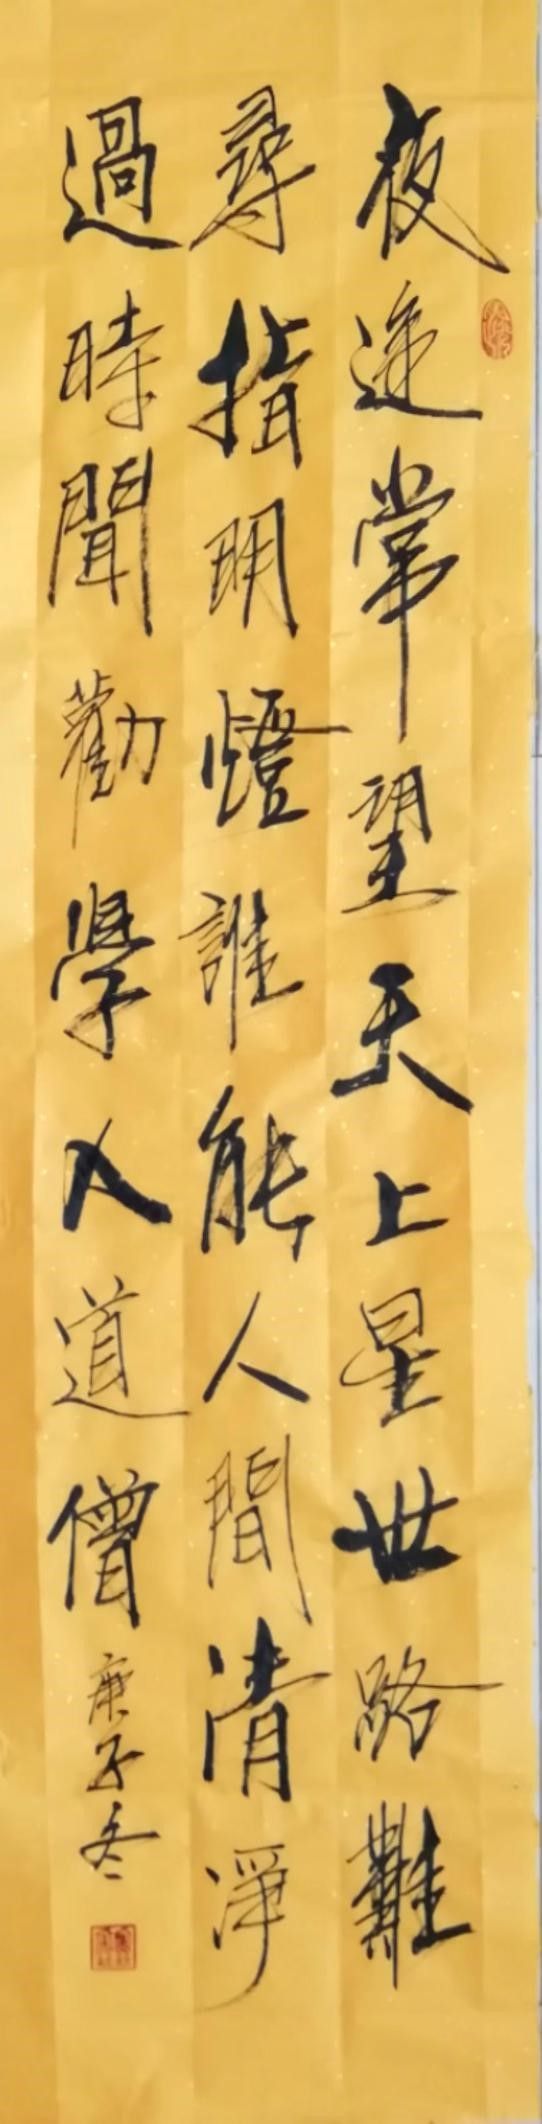 夜途常望天上星世路難
尋指明燈誰能人間清淨
過時聞勸學入道僧
庚子冬